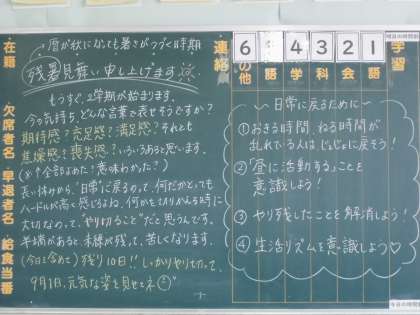 暦が秋になっても暑さがつづく時期
残暑見舞い申し上げます
もうすぐ、2学期が始まります。
今の気持ち、どんな言葉で表せそうですか？
期待感？充足感？満足感？それとも
焦燥感？喪失感？いろいろあると思います。
(↑全部よめた？意味わかった？)
長い休みから、"日常"に戻るのって、何だかとっても
ハードルが高く感じるよね。何かをイチからやる時に
大切なのって、"やり切ること"だと思うんです。
半端があると、未練が残って、苦しくなります。
(今日も含めて)残り10日!!しっかりやりたいって、
9月1日、元気な姿を見せてネ
在籍
欠席者名
早退者名
給食当番
連絡
6
4
3
2
1
その他
語
学
科
会
語
学習
～日常に戻るために～
①おきる時間、ねる時間が
乱れている人はじょじょに戻そう！
②「昼に活動する」ことを
意識しよう！
③やり残したことを解消しよう！
④生活リズムを意識しよう♡